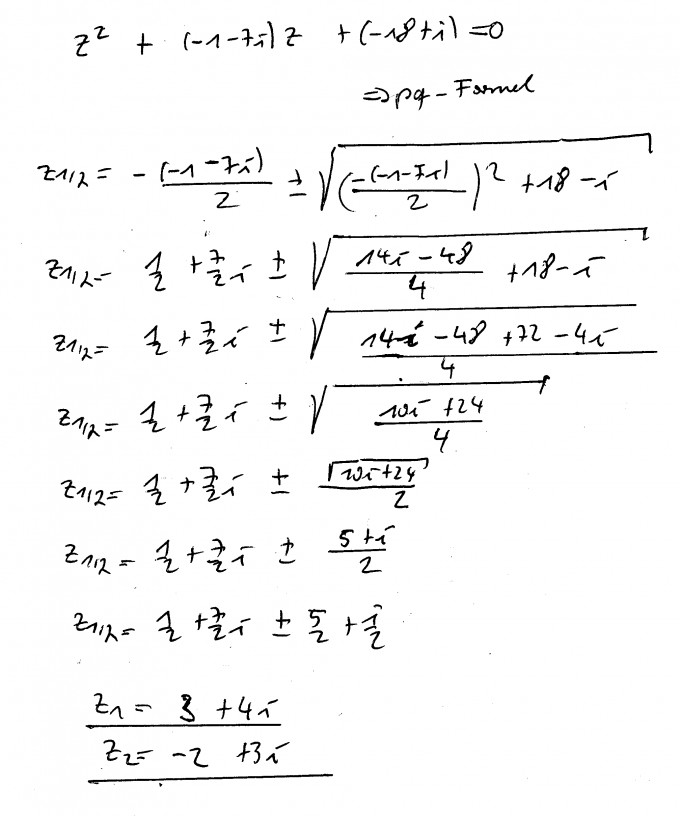 z² + (-1-7i)z + (-18+i) = 0
⇒ pq-Formel
z1/2 = - (-1-7i)/2 ± √((-(-1-7i)/2)² + 18 - i)
z1/2 = 1/2 + 7/2 i ± √((14i - 48)/4 + 18 - i)
z1/2 = 1/2 + 7/2 i ± √((14i - 48 + 72 - 4i)/4)
z1/2 = 1/2 + 7/2 i ± √((10i + 24)/4)
z1/2 = 1/2 + 7/2 i ± √(10i + 24)/2
z1/2 = 1/2 + 7/2 i ± (5 + i)/2
z1/2 = 1/2 + 7/2 i ± 5/2 + i/2
z1 = 3 + 4i
z2 = -2 + 3i